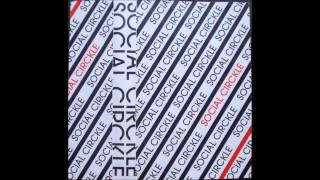 SOCIAL CIRCKLE
SOCIAL CIRCKLE
SOCIAL CIRCKLE
SOCIAL CIRCKLE
SOCIAL CIRCKLE
SOCIAL CIRCKLE
SOCIAL CIRCKLE
SOCIAL CIRCKLE
SOCIAL CIRCKLE
SOCIAL CIRCKLE
SOCIAL CIRCKLE
SOCIAL CIRCKLE